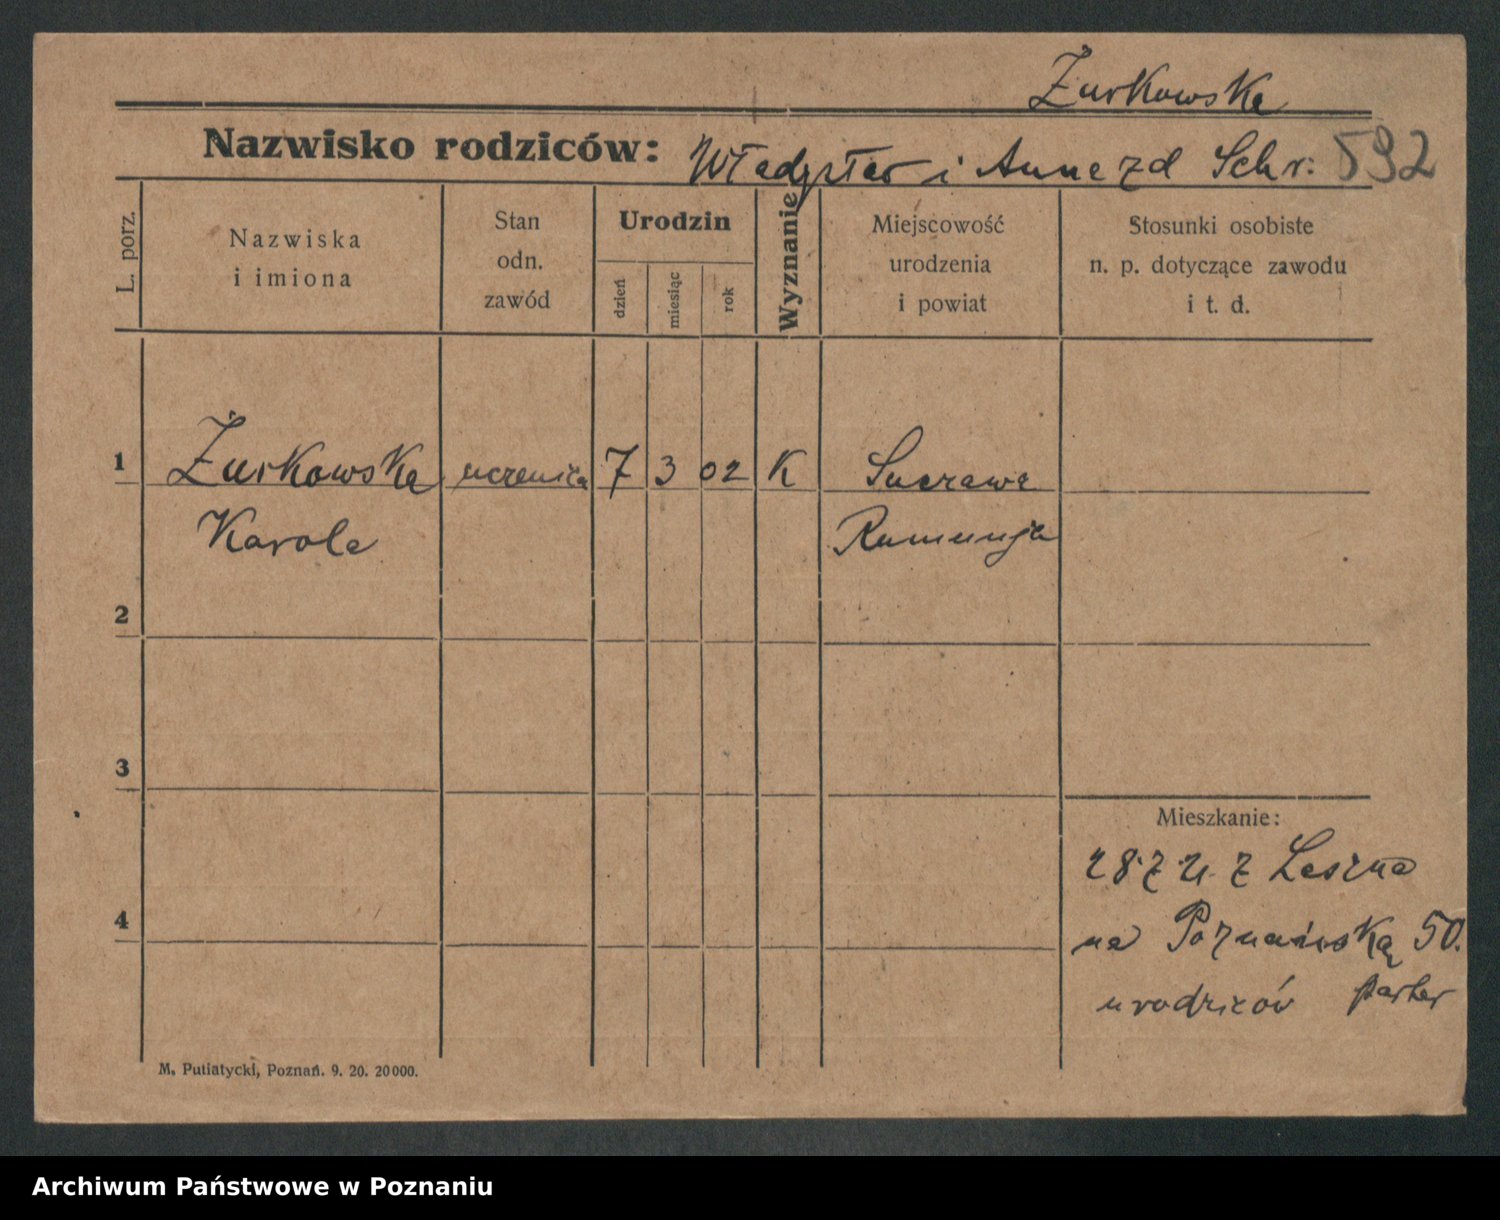 Żurkowska
Nazwisko rodziców: Władysław i Anna zd Schr: 592
L. porz.
Nazwiska
i imiona
Stan
odn.
zawód
Urodzin
dzień
miesiąc
rok
Wyznanie
Miejscowość
urodzenia
i powiat
Stosunki osobiste
n. p. dotyczące zawodu
i t. d.
1 Żurkowska uczenica 7 3 02 K Suczawa
Karola Rumunja
2
3
4
Mieszkanie:
28.7.21. z Leszna
na Poznańską 50.
u rodziców parter
M. Putiatycki, Poznań. 9. 20. 20000.
Archiwum Państwowe w Poznaniu